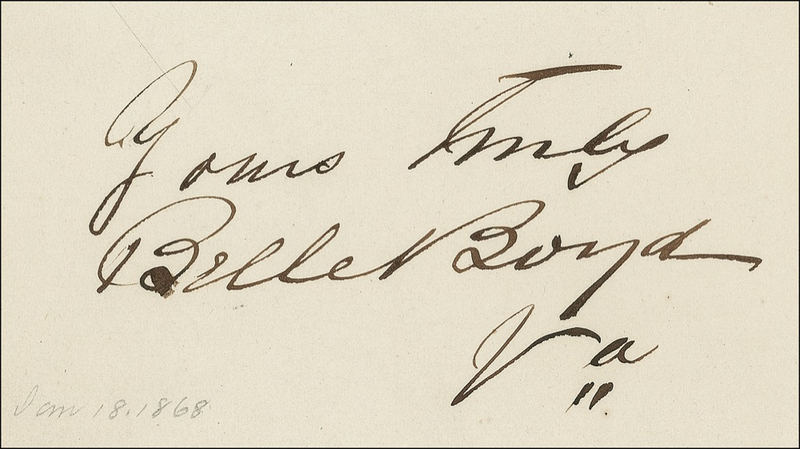 Yours Truly
Belle Boyd
Va
Jan 18. 1868